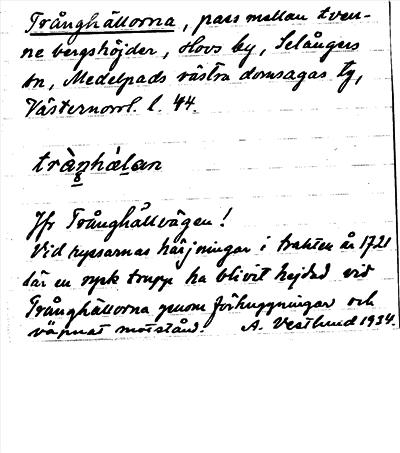 Trånghällorna, pass mellan tven-
ne bergshöjder, Hovs by, Selångers
sn, Medelpads västra domsagas tg,
Västernorrl. l. 44.
trànhàlan
Jfr Trånghällvägen!
Vid ryssarnas härjningar i trakten år 1721
lär en rysk trupp ha blivit hejdad vid
Trånghällorna genom förhuggningar och
väpnat motstånd. A. Vestlund 1934.